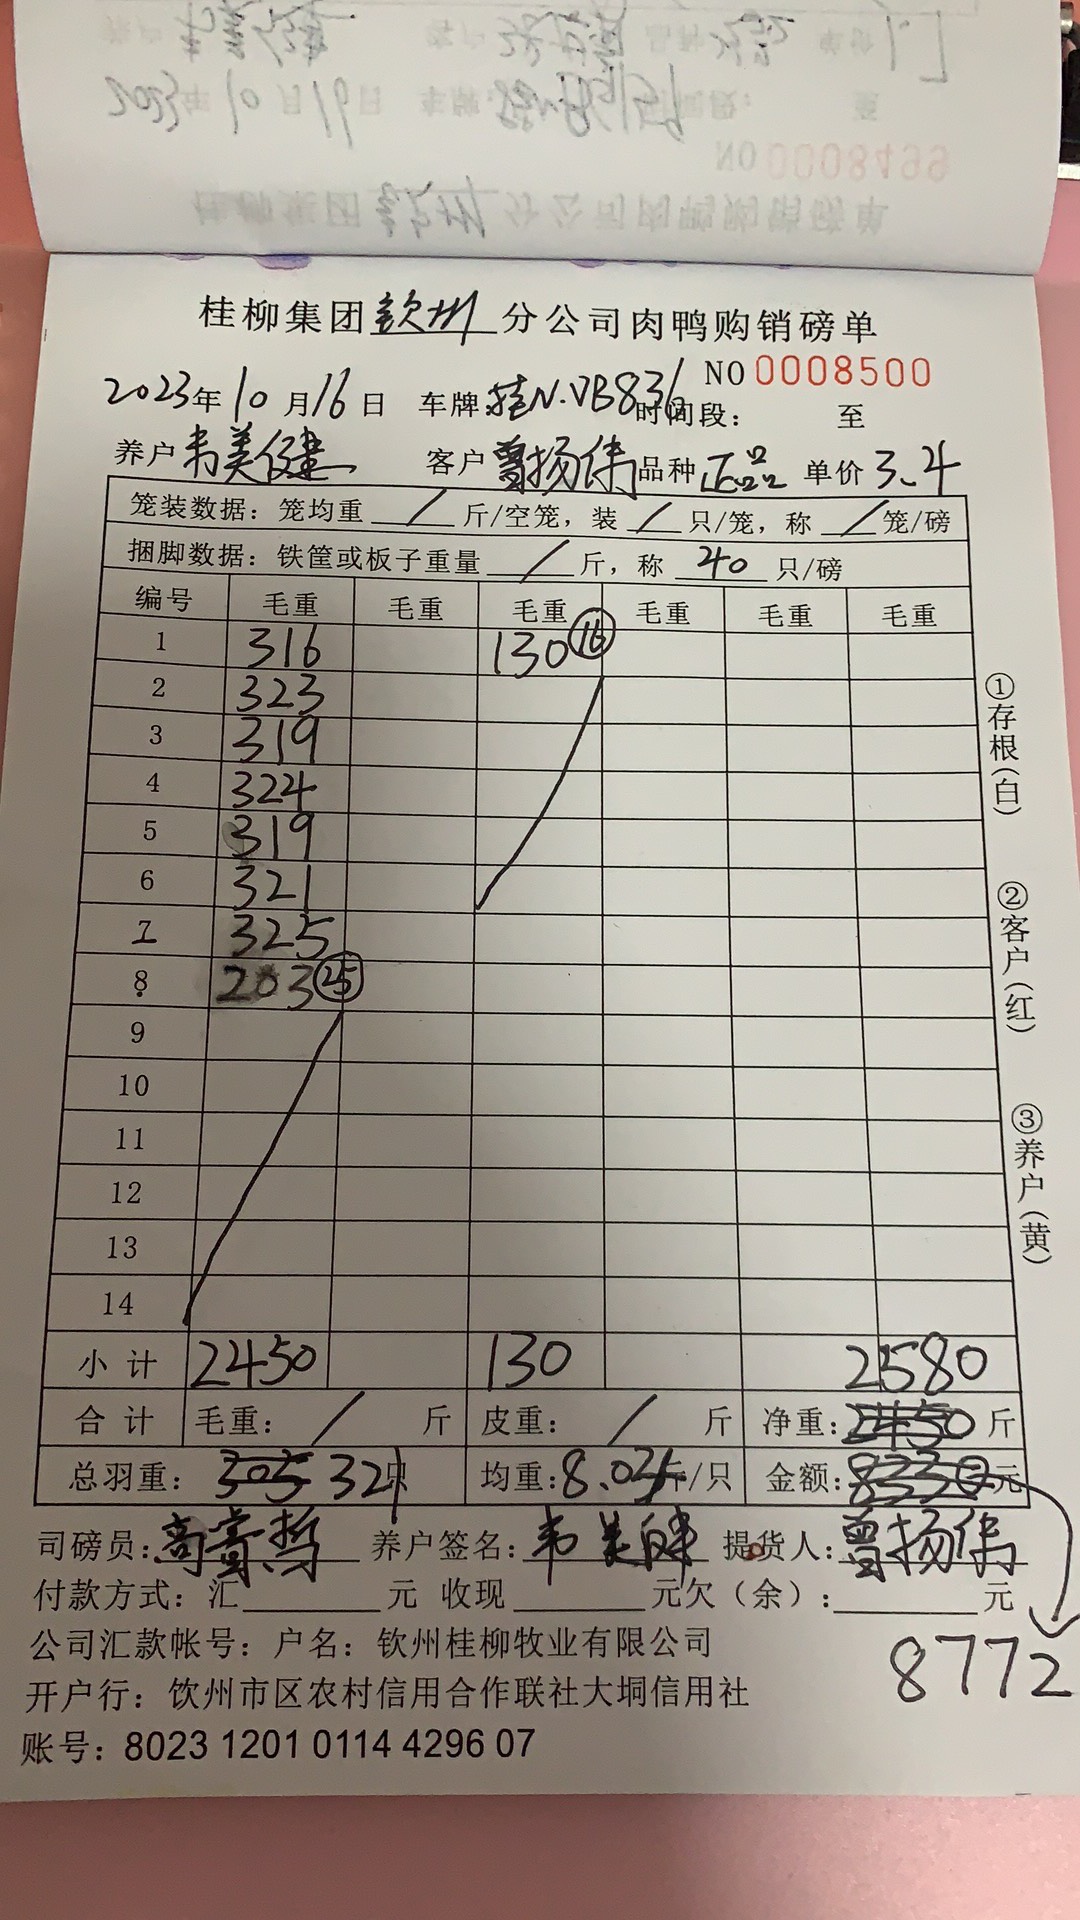 2023年10月19日 车牌:
NO 0008499
桂柳集团钦州分公司肉鸭购销磅单
桂柳集团钦州分公司肉鸭购销磅单
NO 0008500
2023年10月16日 车牌 桂N.VB836 时间段: 至
养户 韦美健 客户 曾扬伟 品种 正品 单价 3.4
笼装数据:笼均重 / 斤/空笼,装 / 只/笼,称 / 笼/磅
捆脚数据:铁筐或板子重量 / 斤,称 40 只/磅
编号 毛重 毛重 毛重 毛重 毛重 毛重
1 316 130 ⑯
2 323
3 319
4 324
5 319
6 321
7 325
8 203 ㉕
9
10
11
12
13
14
小计 2450 130 2580
合计 毛重: / 斤 皮重: / 斤 净重: 2450 斤
总羽重: 305 321只 均重: 8.04斤/只 金额: 8330元
司磅员: 养户签名: 韦美健 提货人: 曾扬伟
付款方式:汇 元 收现 元欠(余): 元
8772
公司汇款帐号:户名:钦州桂柳牧业有限公司
开户行:钦州市区农村信用合作联社大垌信用社
账号:8023 1201 0114 4296 07
①存根(白)
②客户(红)
③养户(黄)